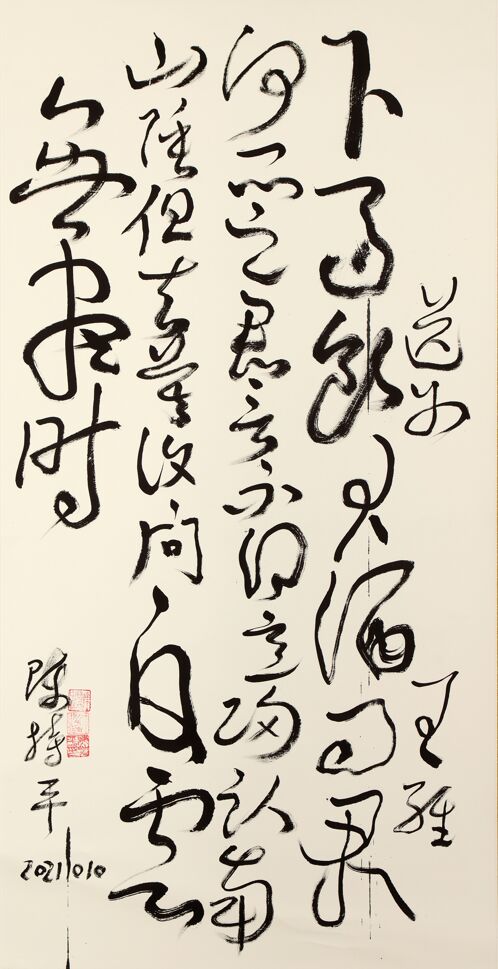 送别
王维
下马饮君酒问君
何所之君言不得意归卧南
山陲但去莫复问白云
无尽时
陈持平
20211010